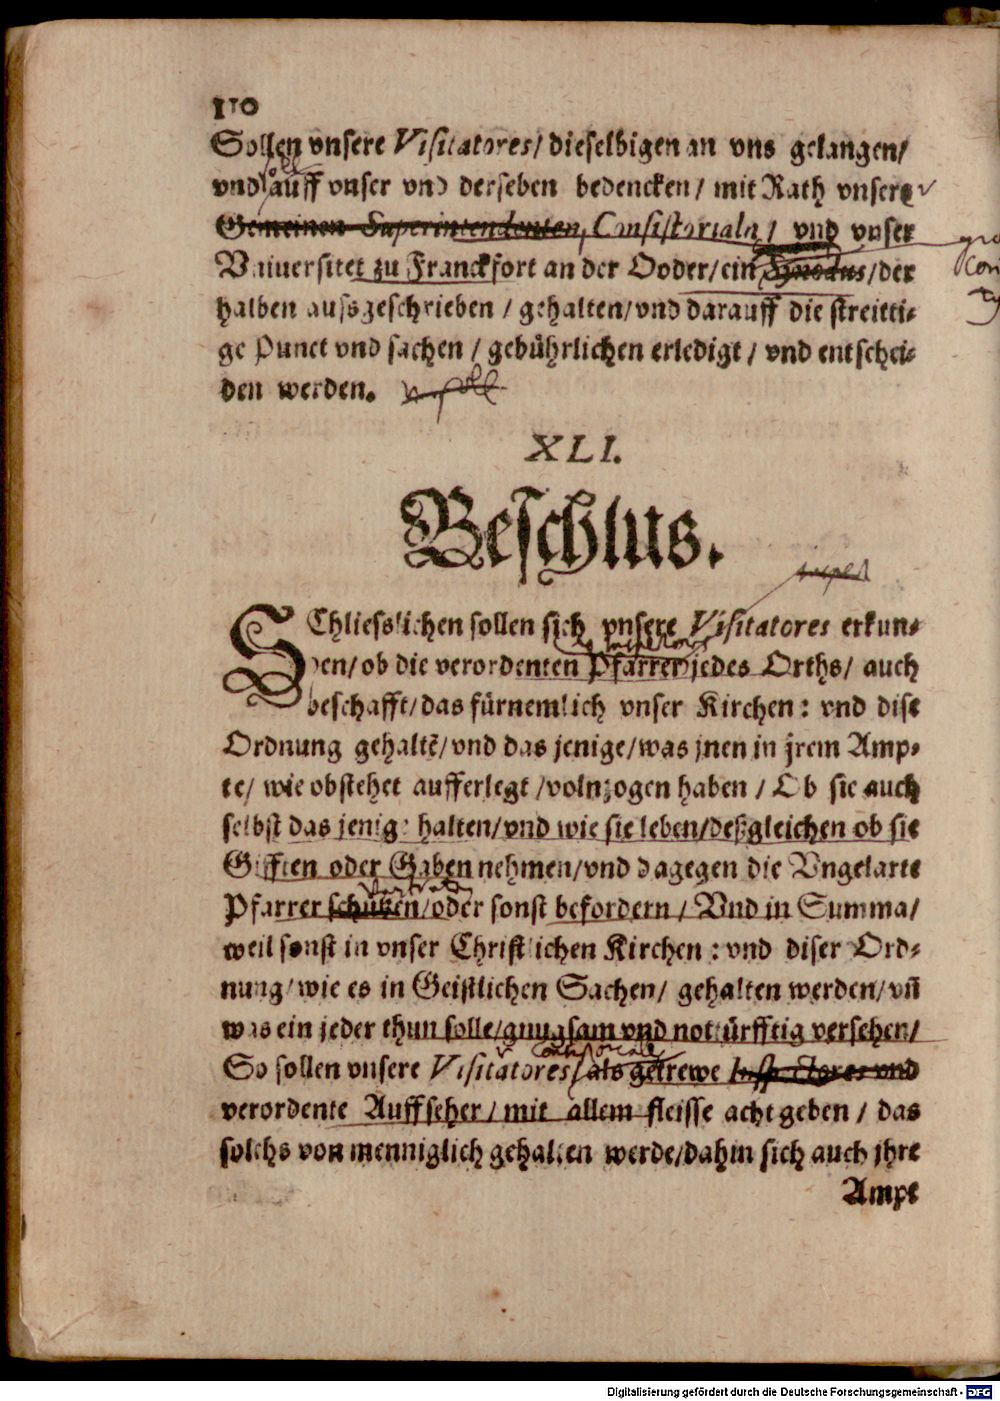 110
Sollen vnsere Visitatores/ dieselbigen an vns gelangen/
vnd auff vnser vnd derseben bedencken/ mit Rath vnsere
Gemeinen Superintendenten, Consistorialn / vnd vnser
Vniuersitet zu Franckfort an der Ooder/ ein Synodus/ der
halben aussgeschrieben / gehalten/ vnd darauff die streitti-
ge Punct vnd sachen / gebührlichen erledigt / vnd entschei-
den werden.
XLI.
Beschlus.
SChliesslichen sollen sich vnsere Visitatores erkun-
den/ ob die verordenten Pfarrer jedes Orths/ auch
beschafft/ das fürnemlich vnser Kirchen: vnd dise
Ordnung gehaltē/ vnd das jenige/ was jnen in jrem Amp-
te/ wie obstehet aufferlegt /volnzogen haben / Ob sie auch
selbst das jenige halten/ vnd wie sie leben/ deßgleichen ob sie
Gifften oder Gaben nehmen/ vnd dagegen die Vngelarte
Pfarrer schützen/ oder sonst befordern / Vnd in Summa/
weil sonst in vnser Christlichen Kirchen: vnd diser Ord-
nung/ wie es in Geistlichen Sachen/ gehalten werden/ vn̄
was ein jeder thun solle/ gnugsam vnd nottürfftig versehen/
So sollen vnsere Visitatores/ als getrewe Inspectores vnd
verordente Auffseher/ mit allem fleisse acht geben / das
solchs von menniglich gehalten werde/ dahin sich auch jhre
Ampt
Digitalisierung gefördert durch die Deutsche Forschungsgemeinschaft - DFG